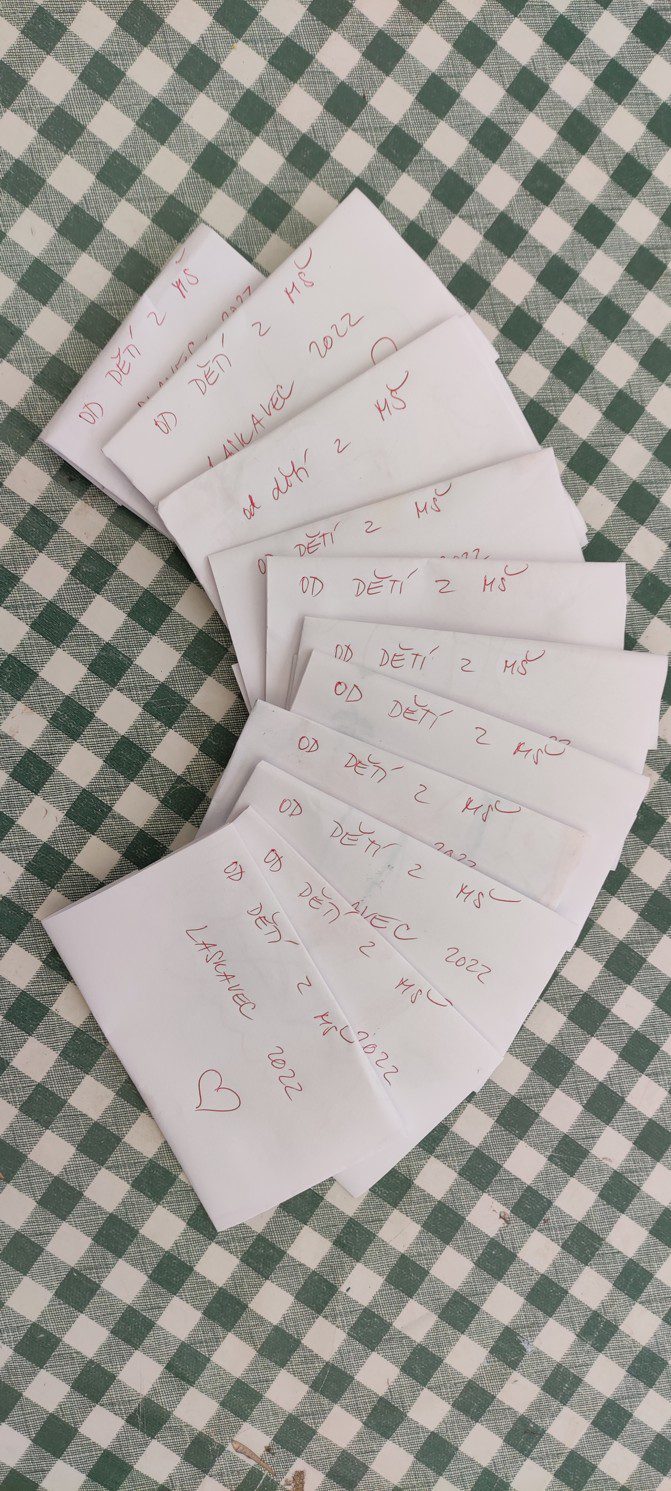 OD DĚTÍ Z MŠ
2022
OD DĚTÍ Z MŠ
LASKAVEC 2022
od dětí z MŠ
OD DĚTÍ Z MŠ
2022
OD DĚTÍ Z MŠ
OD DĚTÍ Z MŠ
OD DĚTÍ Z MŠ
OD DĚTÍ Z MŠ
2022
OD DĚTÍ Z MŠ
AVEC 2022
OD DĚTÍ Z MŠ
2022
OD DĚTÍ Z MŠ
LASKAVEC 2022